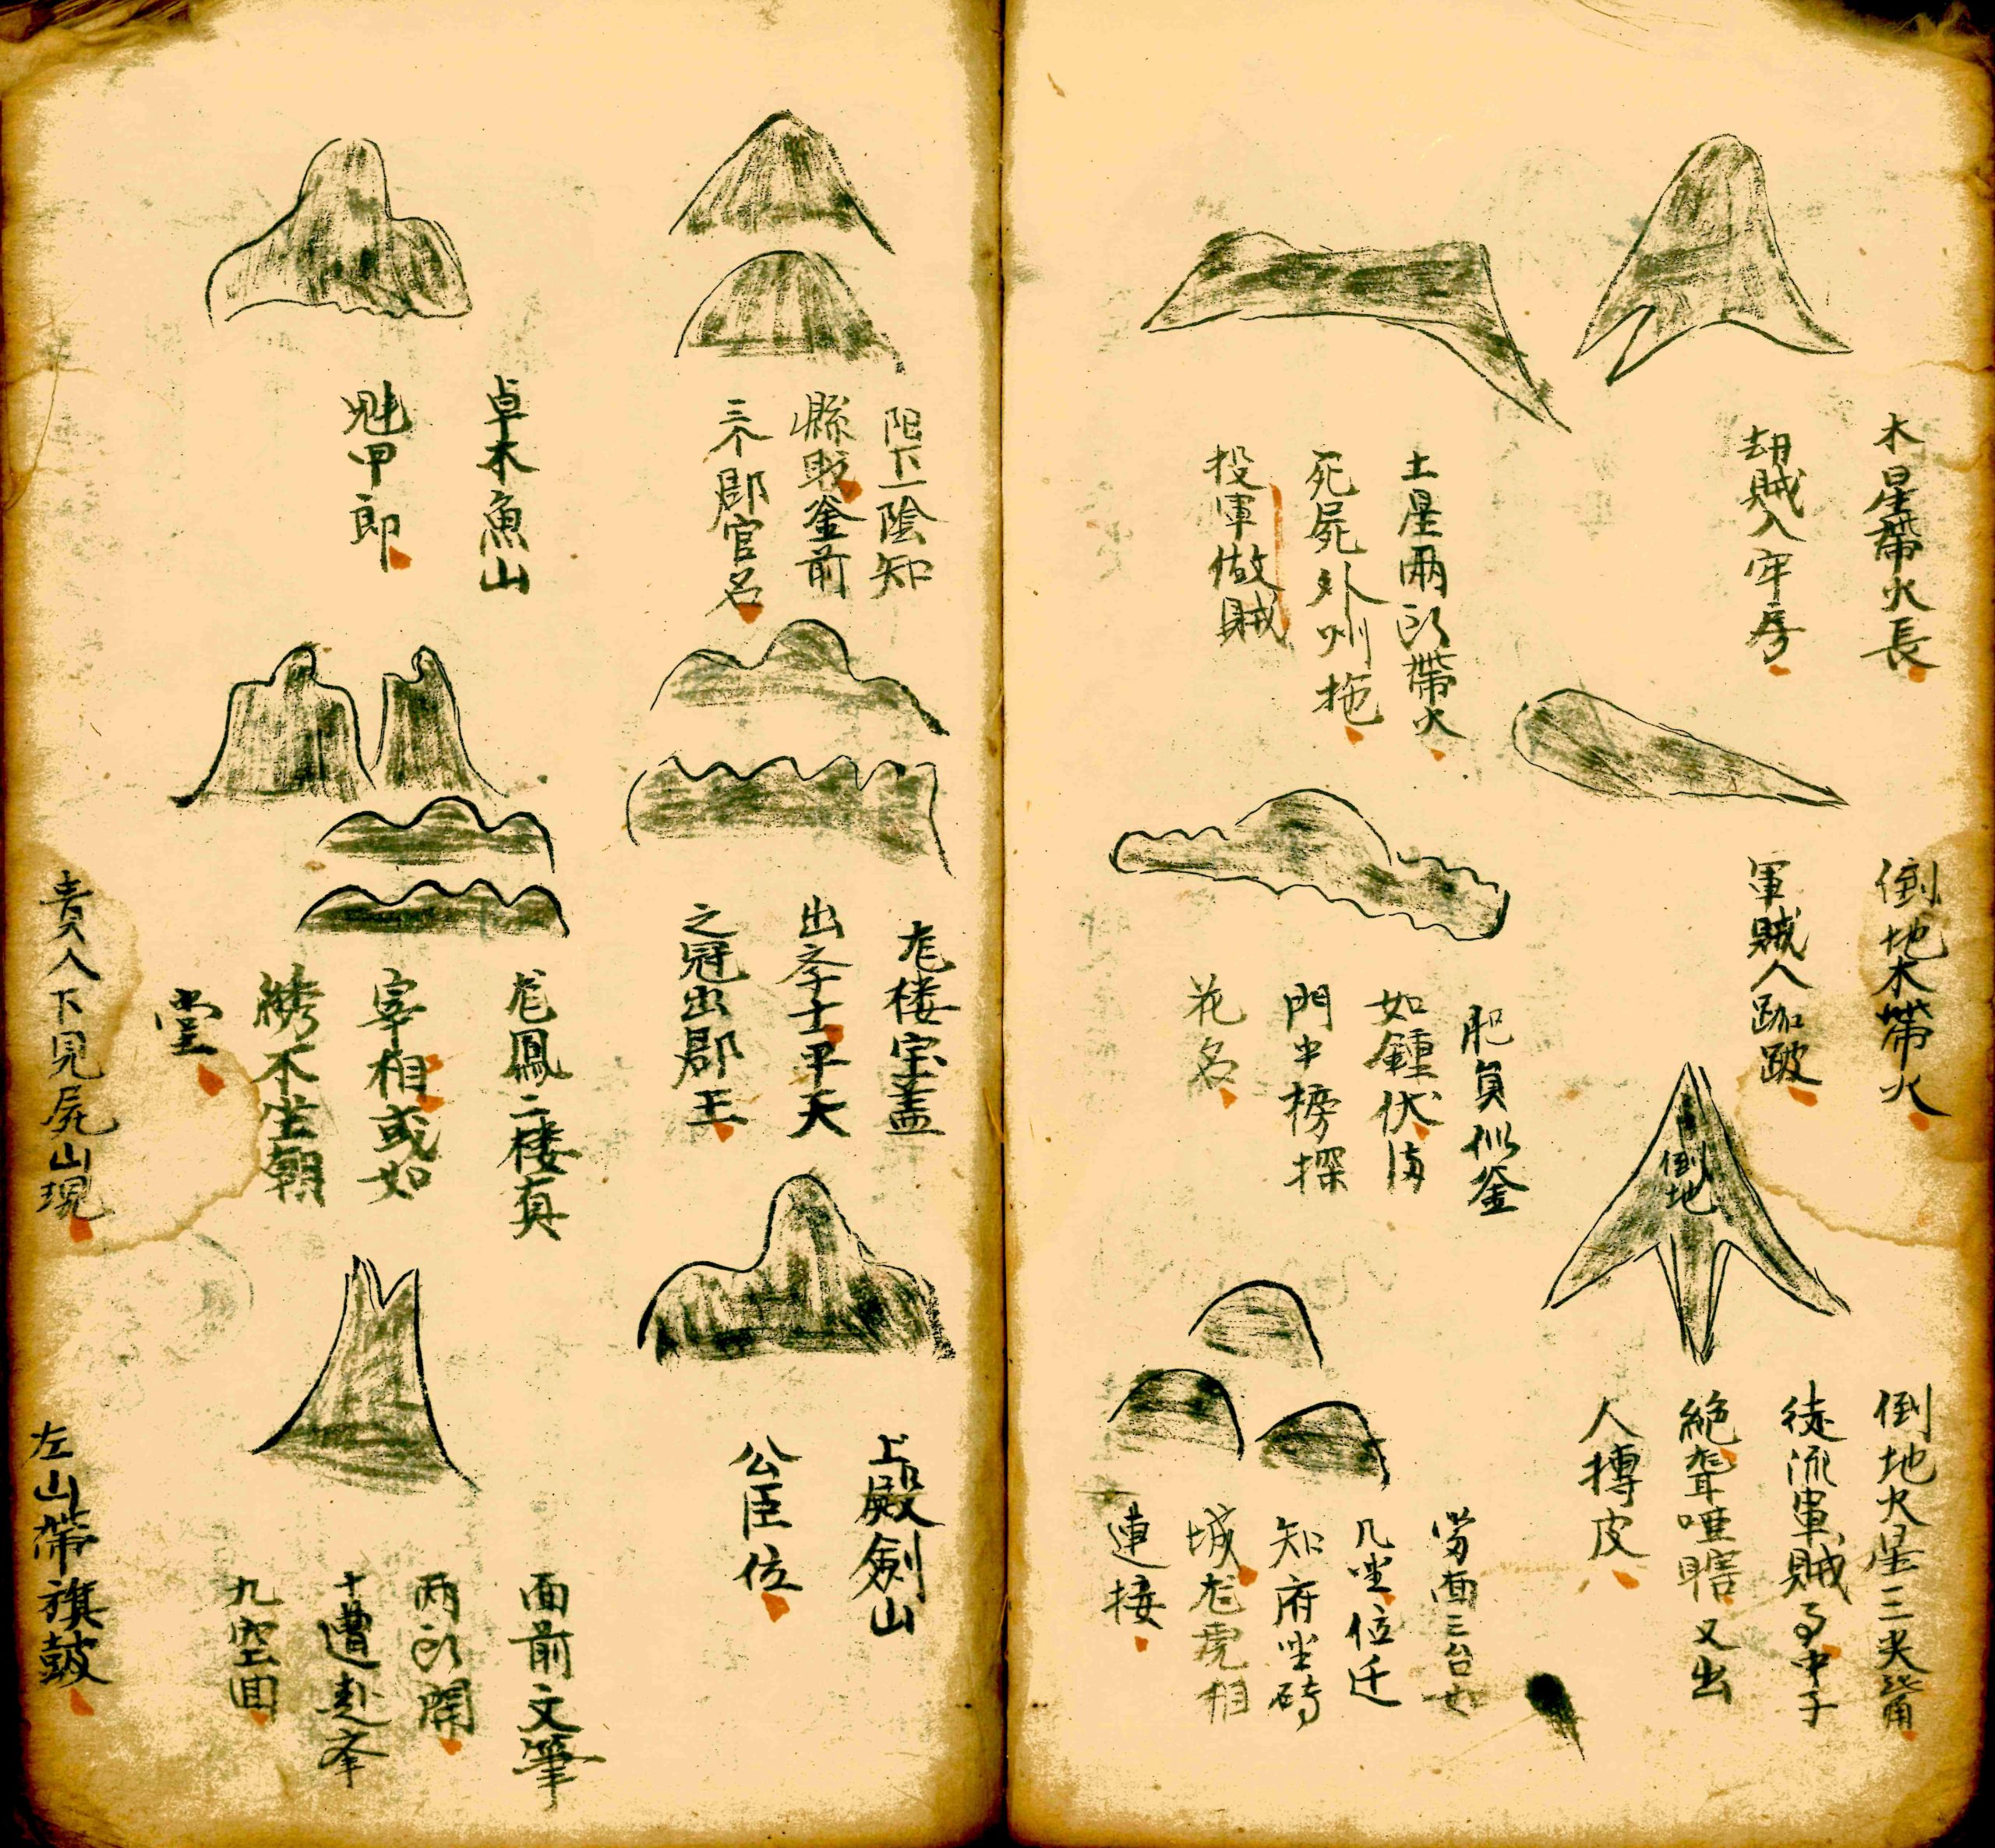 木星帶火長
劫賊入牢房
土星兩头帶火
死屍外州拖
投軍做賊
倒地木帶火
軍賊人跏跛
肥員似釜
如鍾伏
門中榜探
花名
倒地
倒地火星三夹
徒流軍賊 中子
絶聋哑瞎又出
人摶皮
面三台
几坐位迁
知府坐
城尨虎相
連接
阳下一陰知
縣 釜前
郡官名
卓木魚山
魁甲郎
尨楼宝盖
出斈士平天
之冠出郡王
尨鳳二楼真
宰相或如
綉不坐朝
堂
上殿劍山
公臣位
面前文筆
两头開
十遭赴斈
九空囬
貴人下見屍山現
左山帶旗鼓